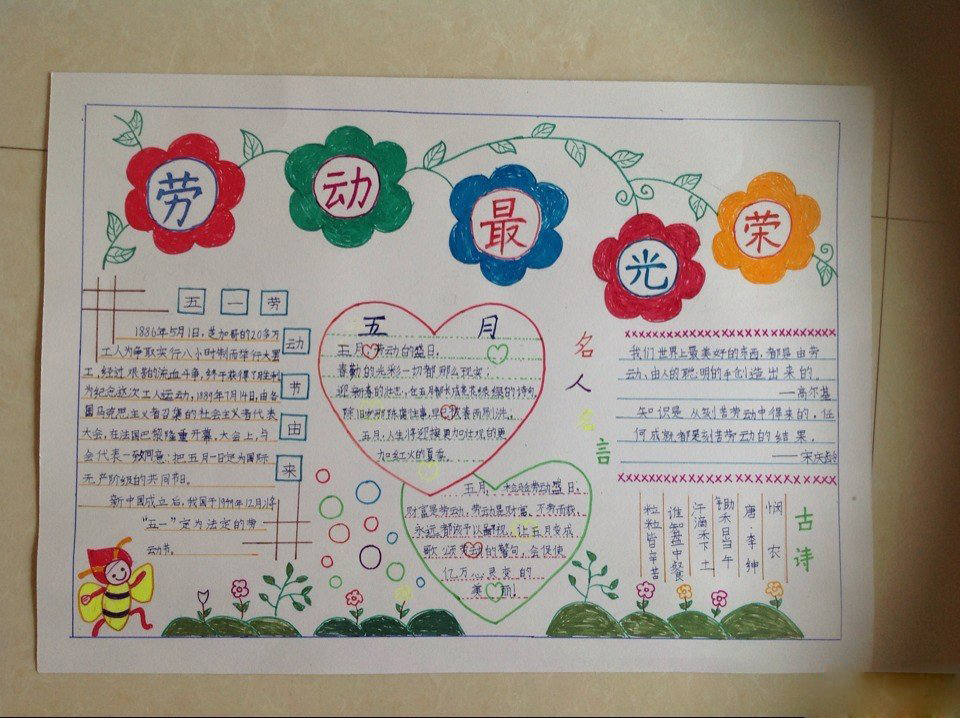 劳动最光荣
五一劳动节由来
1886年5月1日,芝加哥的20多万
工人为争取实行八小时制而举行大罢
工,经过艰苦的流血斗争,终于获得了胜利
为纪念这次工人运动,1889年7月14日,由各
国马克思主义者召集的社会主义者代表
大会,在法国巴黎隆重开幕,大会上,与
会代表一致同意:把五月一日定为国际
无产阶级的共同节日。
新中国成立后,我国于1949年12月将
“五一”定为法定的劳
动节。
五月
五月劳动的盛日,
春勤的光彩一切都那么现实;
除旧
五月:人生将迎接更加壮观的更
加红火的夏季。
五月,劳动盛日:
财富是劳动,劳动是财富、不劳而获,
永远都该予以鄙视、让五月变成
歌颂劳动的警句,会促使
亿万心灵变的
美丽!
名人名言
我们世界上最美好的东西,都是由劳
动、由人的聪明的手创造出来的。
——高尔基
知识是从刻苦劳动中得来的,任
何成就都是刻苦劳动的结果。
——宋庆龄
古诗
悯农
唐·李绅
锄禾日当午
汗滴禾下土
谁知盘中餐
粒粒皆辛苦